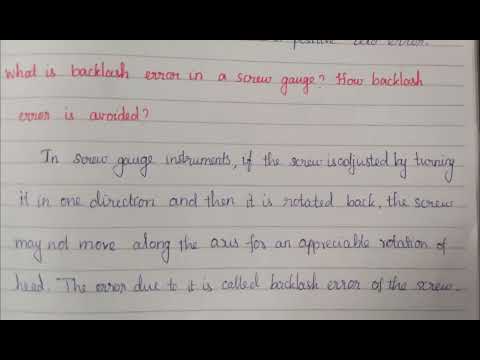 positive zero error.
What is backlash error in a screw gauge? How backlash
error is avoided?
In screw gauge instruments, if the screw is adjusted by turning
it in one direction and then it is rotated back, the screw
may not move along the axis for an appreciable rotation of
head. The error due to it is called backlash error of the screw.